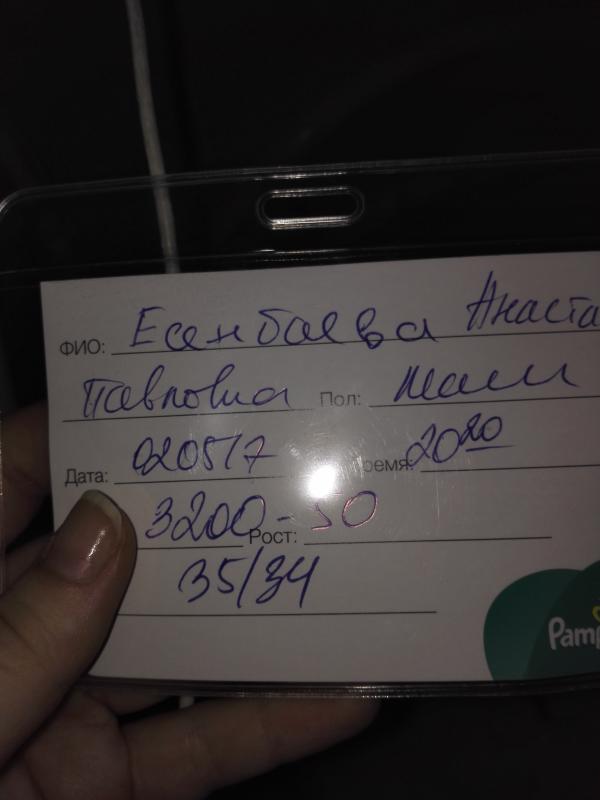 ФИО: Есенбаева Анаста
Павловна Пол: мал
Дата: 020517 ремя: 20 20
3200 - Рост: 50
35/34
Pamp